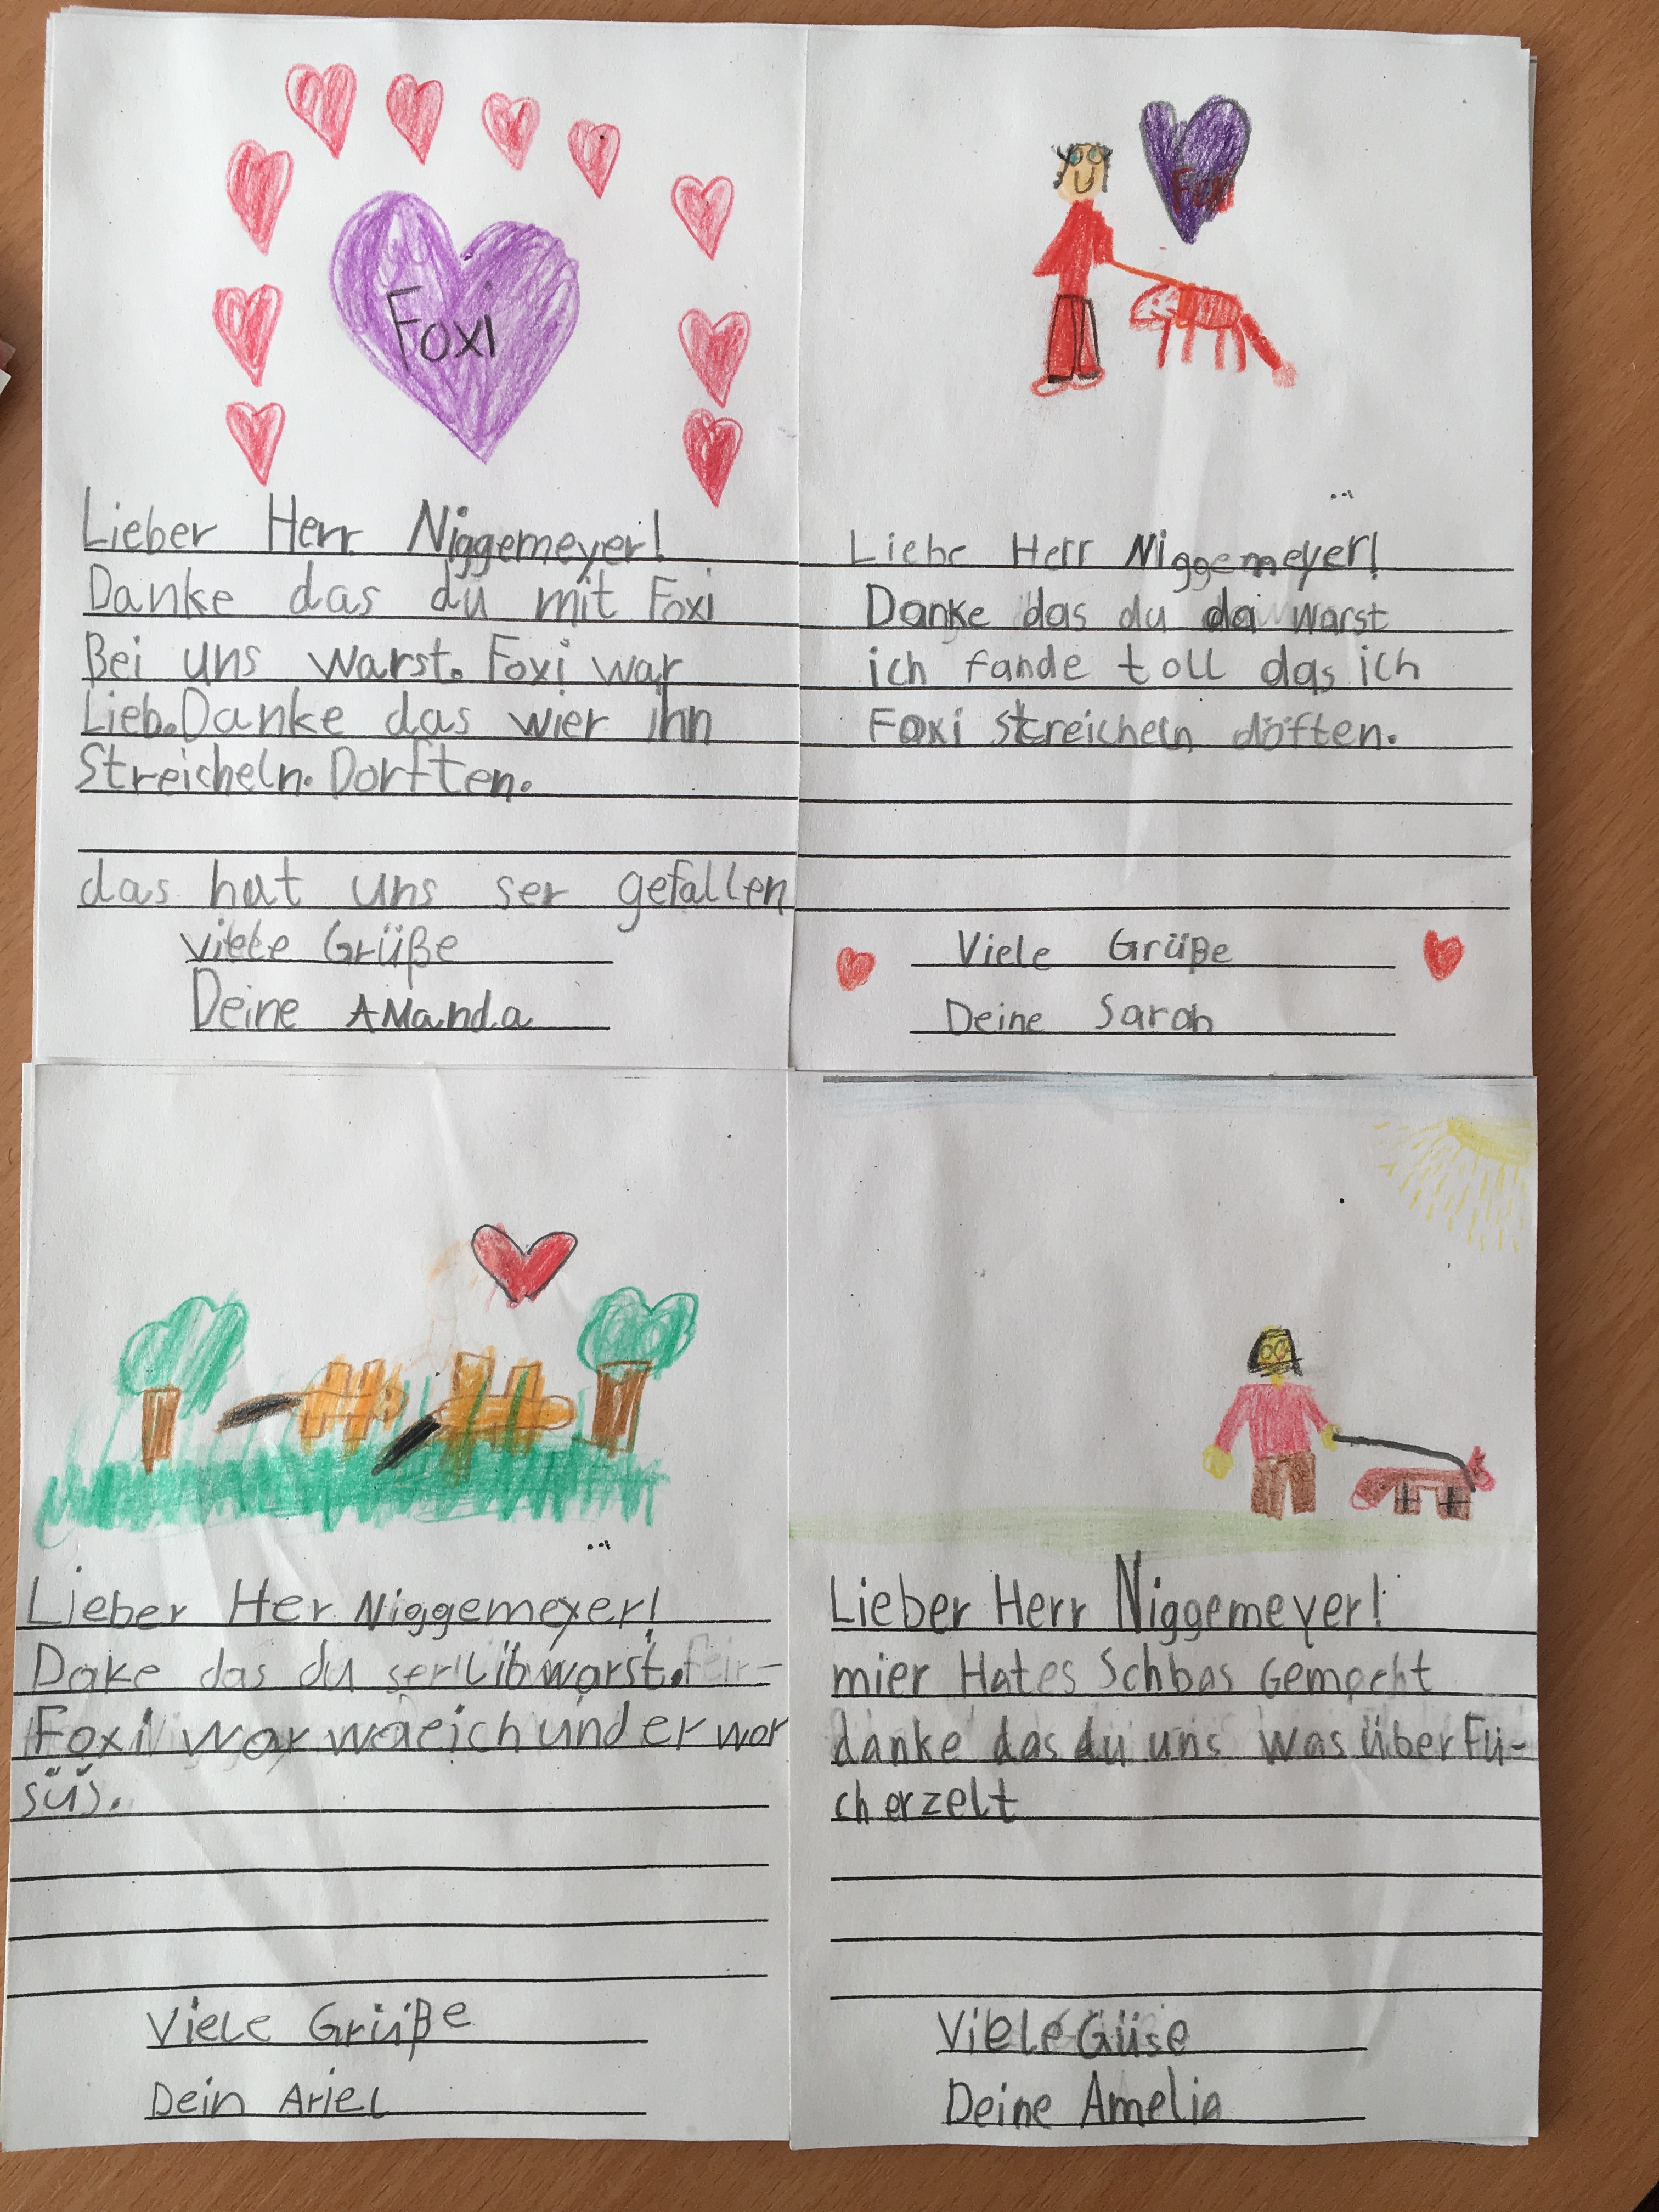 Foxi
Lieber Herr Niggemeyer!
Danke das du mit Foxi
Bei uns warst. Foxi war
Lieb. Danke das wier ihn
Streicheln. Dorften.
das hat uns ser gefallen
viele Grüße
Deine AManda
Foxi
Liebe Herr Niggemeyer!
Danke das du da warst
ich fande toll das ich
Foxi streicheln döften.
Viele Grüße
Deine Sarah
Lieber Her Niggemeyer!
Dake das du ser lib warst.
Foxi war waeich und er war
süs.
Viele Grüße
Dein Ariel
Lieber Herr Niggemeyer!
mier Hat es Schbas Gemacht
danke das du uns was über Fü-
ch erzelt
Viele Güse
Deine Amelia